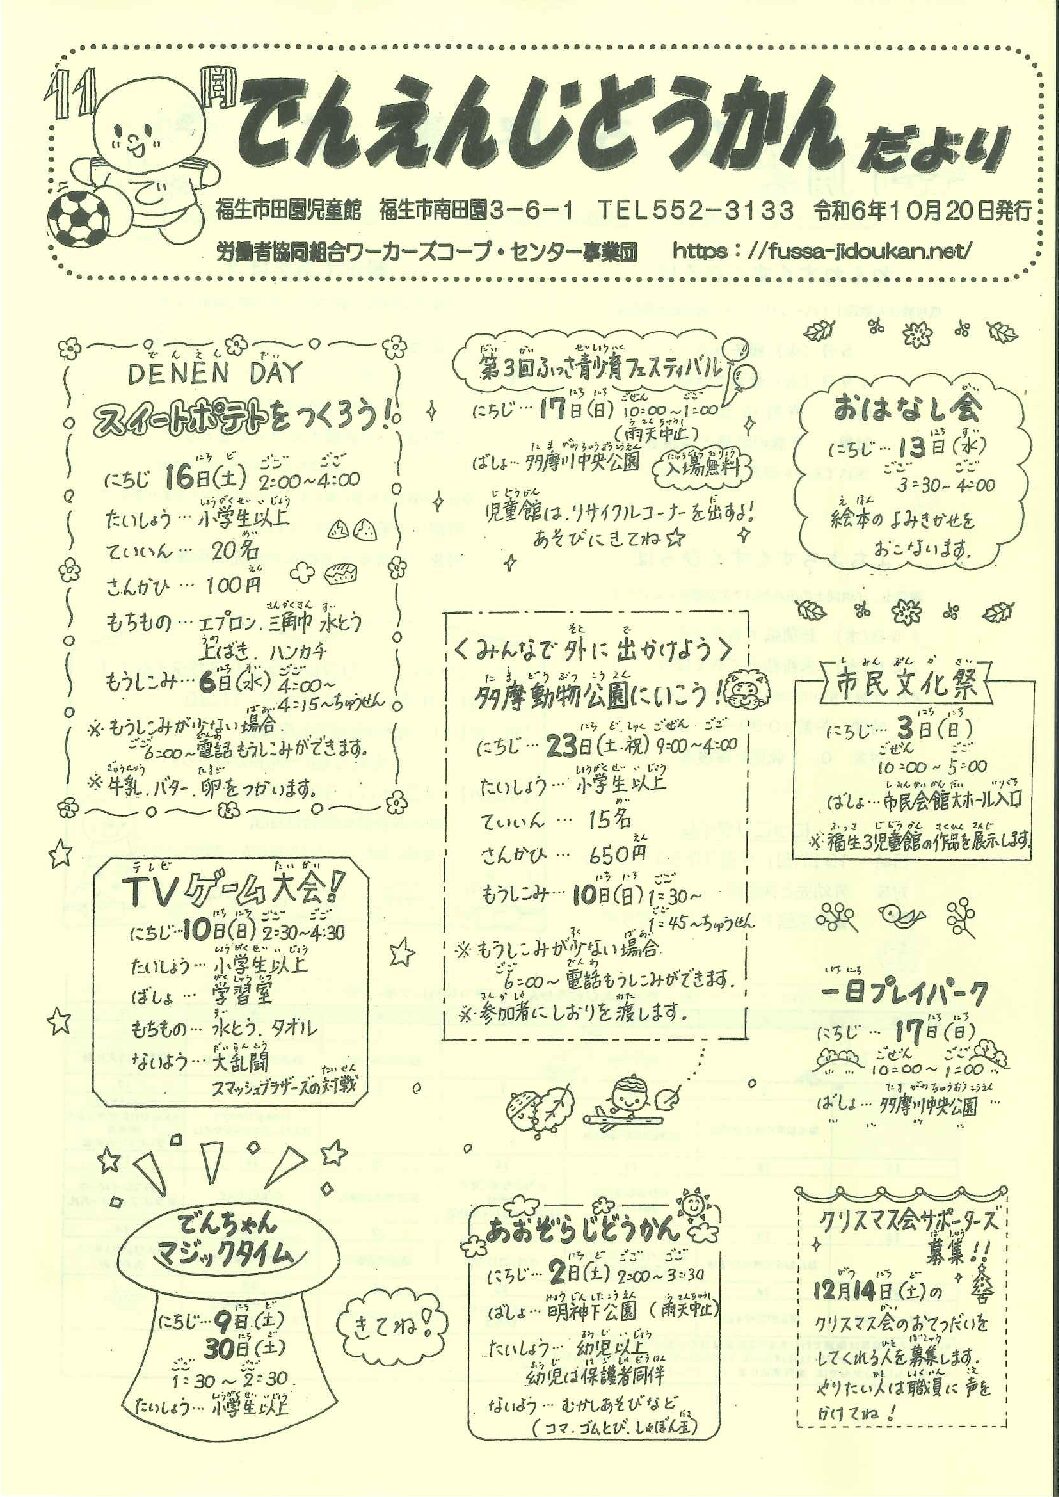 11月
でんえんじどうかんだより
福生市田園児童館 福生市南田園3-6-1 TEL552-3133 令和6年10月20日発行
労働者協同組合ワーカーズコープ・センター事業団 https://fussa-jidoukan.net/
DENEN DAY
スイートポテトをつくろう!
にちじ 16日(土) 2:00~4:00
たいしょう…小学生以上
ていいん… 20名
さんかひ… 100円
もちもの…エプロン、三角巾 水とう
上ばき、ハンカチ
もうしこみ…6日(水) 4:00~
4:15~ちゅうせん
※もうしこみが少ない場合、
6:00~電話もうしこみができます。
※牛乳、バター、卵をつかいます。
第3回ふっさ青少育フェスティバル
にちじ…17日(日) 10:00~1:00
(雨天中止)
ばしょ…多摩川中央公園
入場無料
児童館は、リサイクルコーナーを出すよ!
あそびにきてね☆
おはなし会
にちじ…13日(水)
3:30-4:00
絵本のよみきかせを
おこないます。
<みんなで外に出かけよう>
多摩動物公園にいこう!
にちじ…23日(土・祝) 9:00~4:00
たいしょう…小学生以上
ていいん… 15名
さんかひ… 650円
もうしこみ…10日(日) 1:30~
1:45~ちゅうせん
※もうしこみが少ない場合、
6:00~電話もうしこみができます。
※参加者にしおりを渡します。
市民文化祭
にちじ…3日(日)
10:00~5:00
ばしょ…市民会館大ホール入口
※福生3児童館の作品を展示します。
TVゲーム大会!
にちじ…10日(日) 2:30~4:30
たいしょう…小学生以上
ばしょ…学習室
もちもの…水とう、タオル
ないよう…大乱闘
スマッシュブラザーズの対戦
一日プレイパーク
にちじ…17日(日)
10:00~1:00
ばしょ…多摩川中央公園
でんちゃん
マジックタイム
にちじ…9日(土)
30日(土)
1:30~2:30
たいしょう…小学生以上
きてね!
あおぞらじどうかん
にちじ…2日(土) 2:00~3:30
ばしょ…明神下公園(雨天中止)
たいしょう…幼児以上
幼児は保護者同伴
ないよう…むかしあそびなど
(コマ、ゴムとび、しゃぼん玉)
クリスマス会サポーターズ
募集!!
12月14日(土)の
クリスマス会のおてつだいを
してくれる人を募集します。
やりたい人は職員に声を
かけてね!